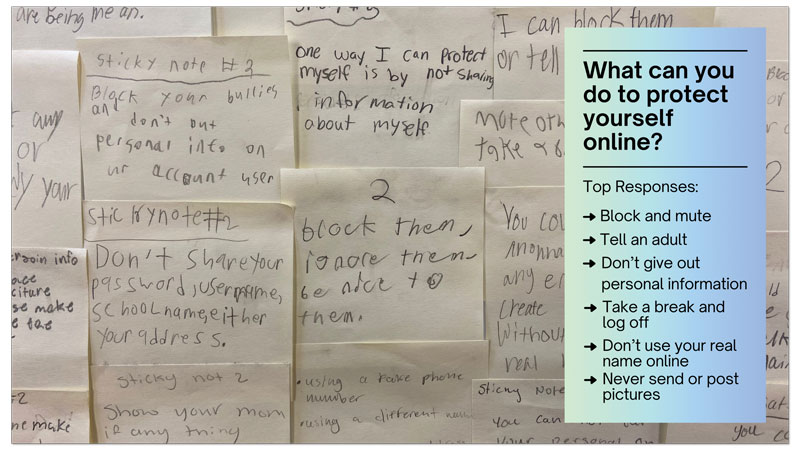 are Being mean.
Sticky note #3
Block your bullies
and don't out
personal info on
ur account user
one way I can protect
myself is by not sharing
information
about myself
I can block them
or tell
any
or
your
Mute
take a
Stickynote#2
Don't share your
password, username,
school name, either
your address.
2
block them,
ignore them
be nice to
them.
You
any
create
Without
real
info
make
Sticky not 2
Show your mom
if any thing
•using a fake phone
number
•using a different name
Sticky Note
you can not
your personal
make
you
What can you
do to protect
yourself
online?
Top Responses:
➔ Block and mute
➔ Tell an adult
➔ Don't give out
personal information
➔ Take a break and
log off
➔ Don't use your real
name online
➔ Never send or post
pictures